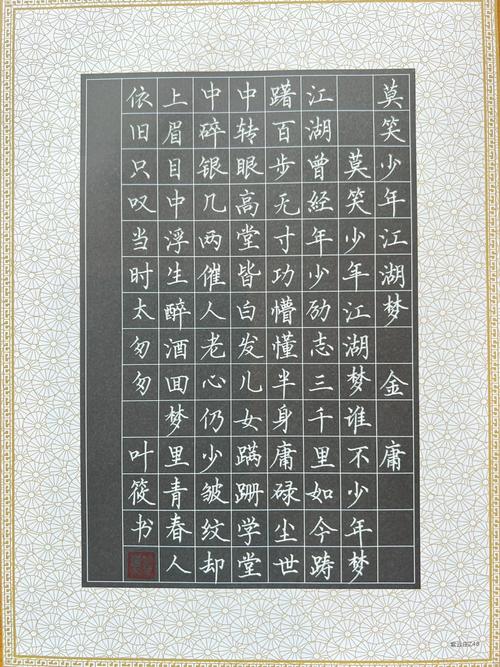 莫笑少年江湖梦 金庸
莫笑少年江湖梦谁不少年梦
江湖曾经年少励志三千里如今踌
躇百步无寸功懵懂半身庸碌尘世
中转眼高堂皆白发儿女蹒跚学堂
中碎银几两催人老心仍少皱纹却
上眉目中浮生醉酒回梦里青春人
依旧只叹当时太匆匆 叶筱书